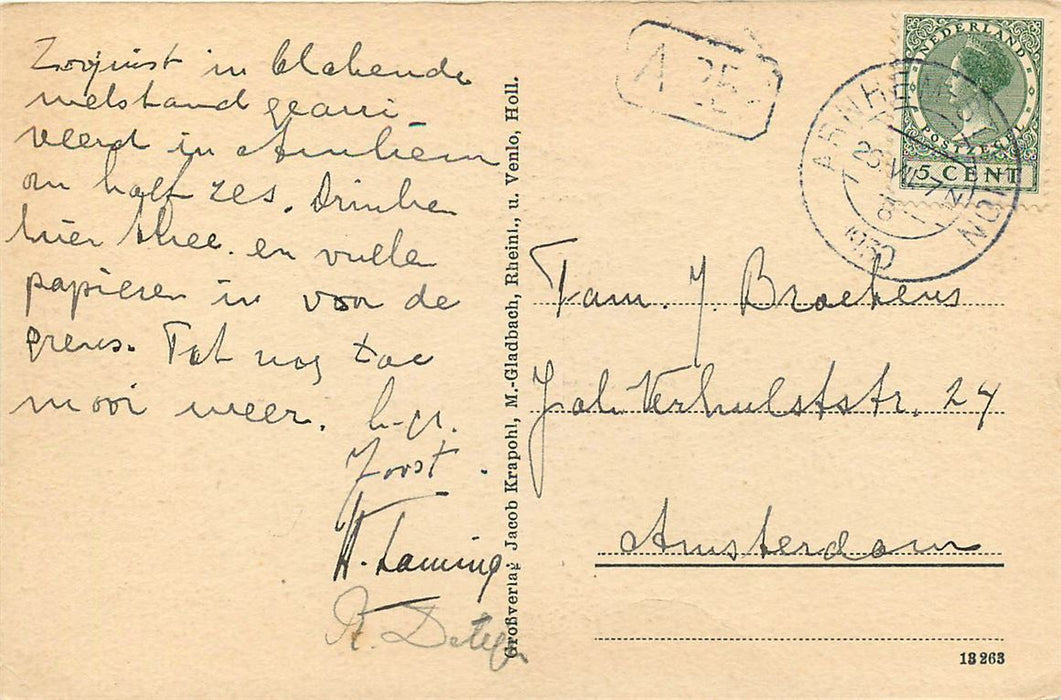 Zoojuist in blakende
welstand gearri
veerd in Arnhem
om half zes. Drinken
hier thee. en vullen
papieren in voor de
grens. Tot nog toe
mooi weer. h-gr.
Joost.
H. Laming.
R.
Großverlag Jacob Krapohl, M.-Gladbach, Rheinl., u. Venlo, Holl.
A 25
NEDERLAND
POSTZEGEL
5 CENT
ARNHEM-STATION
26 VII 7 N
1930
Fam. J. Broekens
Joh. Verhulststr. 24
Amsterdam
13 263